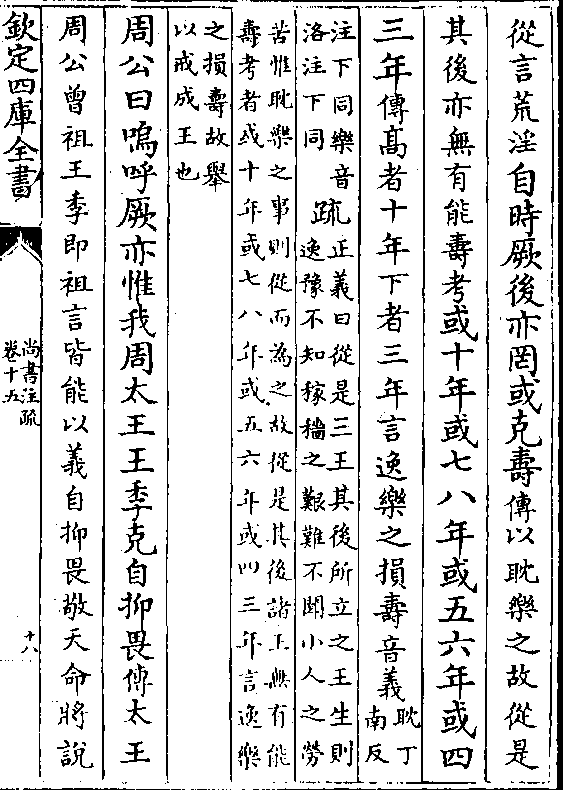 從言荒淫自時厥後亦罔或克壽傳以耽樂之故從是
其後亦無有能壽考或十年或七八年或五六年或四
三年傳髙者十年下者三年言逸樂之損壽音義耽丁
南反
注下同樂音
洛注下同
疏正義曰從是三王其後所立之王生則
逸豫不知稼穡之艱難不聞小人之勞
苦惟耽樂之事則從而為之故從是其後諸王無有能
壽考者或十年或七八年或五六年或四三年言逸樂
之損壽故舉
以戒成王也
周公曰嗚呼厥亦惟我周太王王季克自抑畏傳太王
周公曾祖王季即祖言皆能以義自抑畏敬天命將説
欽定四庫全書
尚書注疏
卷十五
十八